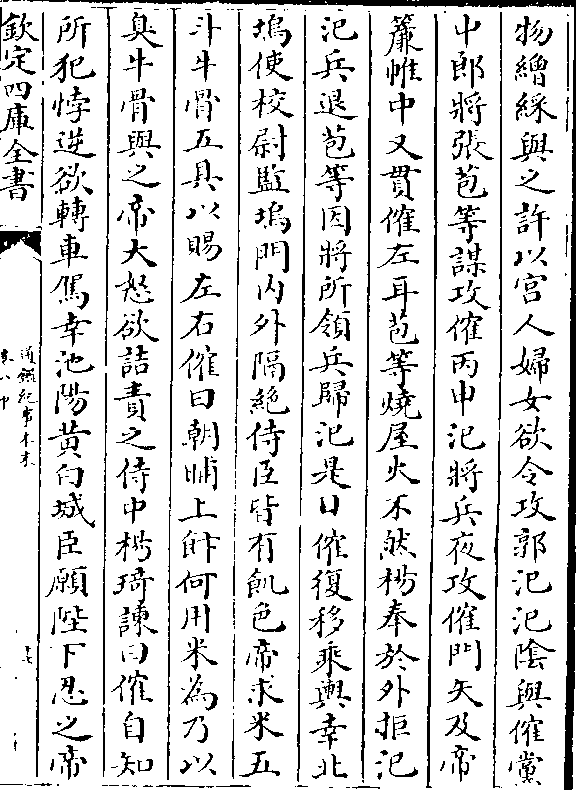 物繒綵與之許以宫人婦女欲令攻郭汜汜隂與傕黨
中郎將張苞等謀攻傕丙申汜將兵夜攻傕門矢及帝
簾帷中又貫傕左耳苞等燒屋火不然楊奉於外拒汜
汜兵退苞等因將所領兵歸汜是日傕復移乘輿幸北
塢使校尉監塢門内外隔絶侍臣皆有飢色帝求米五
斗牛骨五具以賜左右傕曰朝晡上飰何用米為乃以
臭牛骨與之帝大怒欲詰責之侍中楊琦諫曰傕自知
所犯悖逆欲轉車駕幸池陽黄白城臣願陛下忍之帝
欽定四庫全書
通鑑紀事本末
卷八中
十七